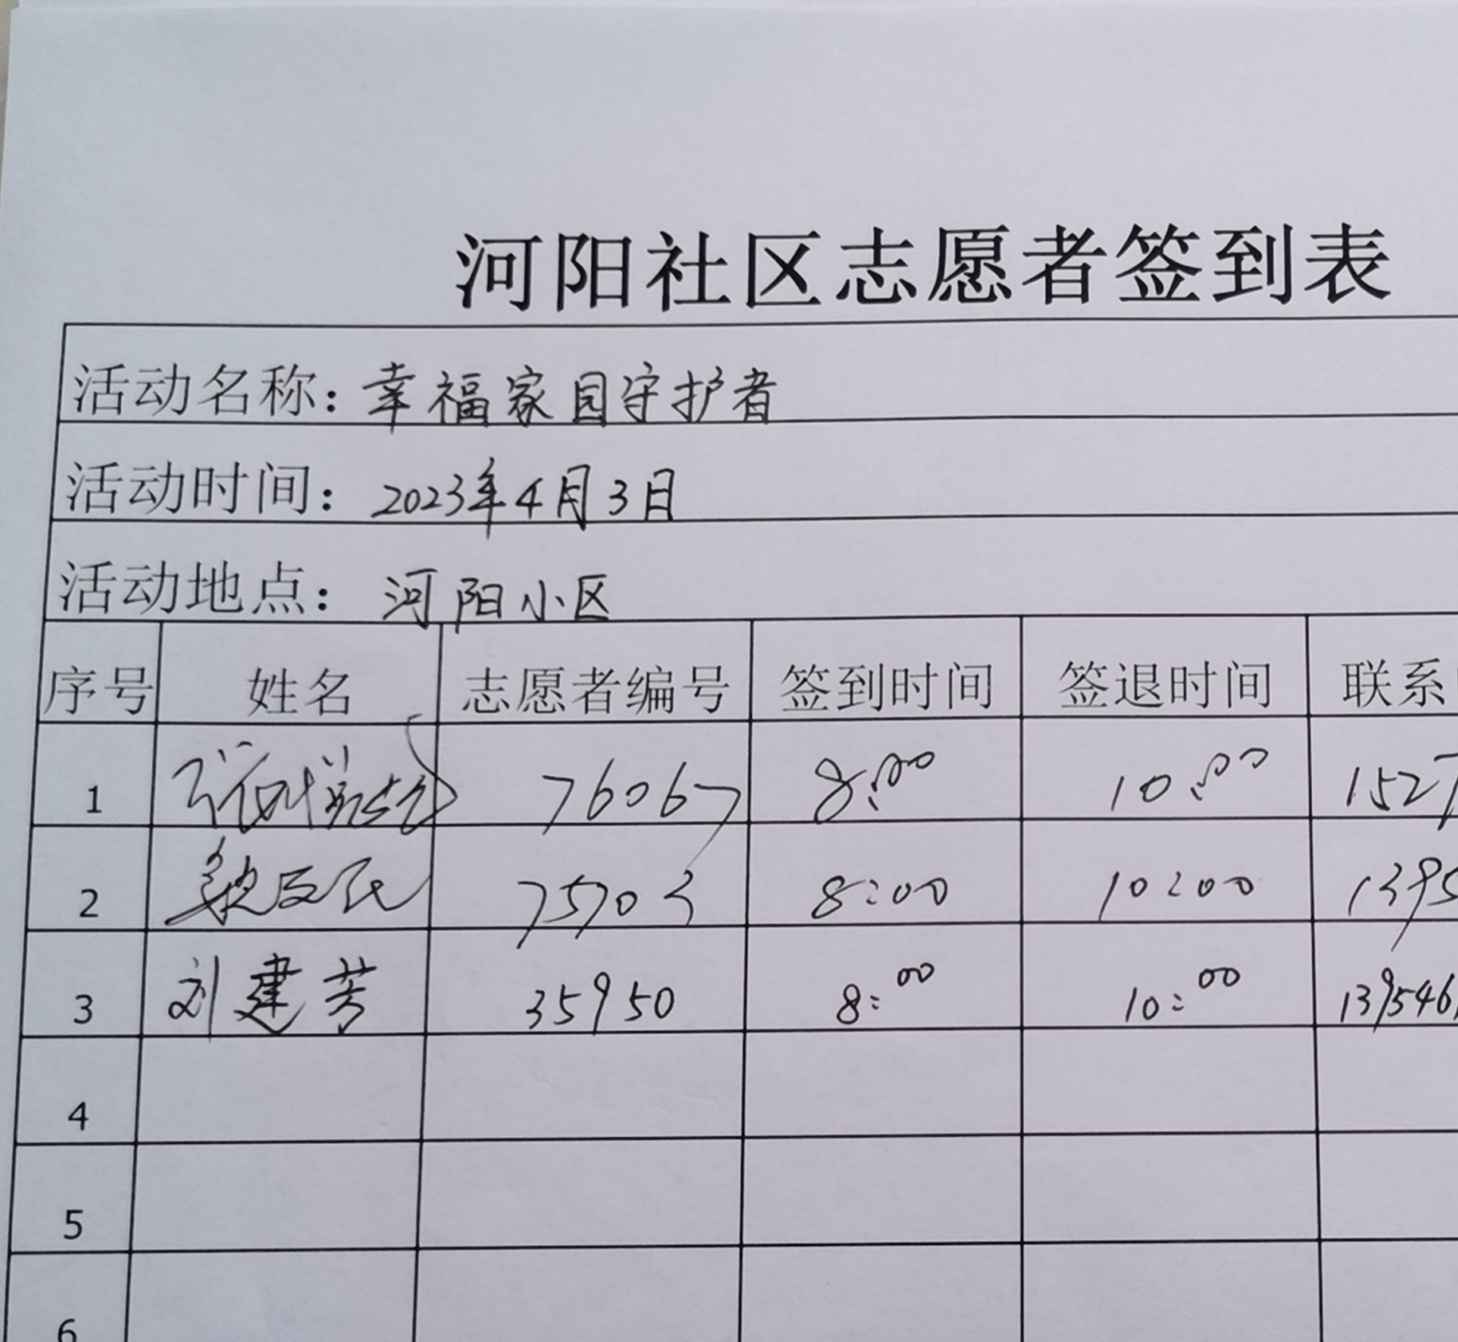 河阳社区志愿者签到表
活动名称：幸福家园守护者
活动时间：2023年4月3日
活动地点：河阳小区
序号 姓名 志愿者编号 签到时间 签退时间 联系
1 76067 8:00 10:00 1527
2 75703 8:00 10:00 1395
3 刘建芳 35950 8:00 10:00 139546
4
5
6